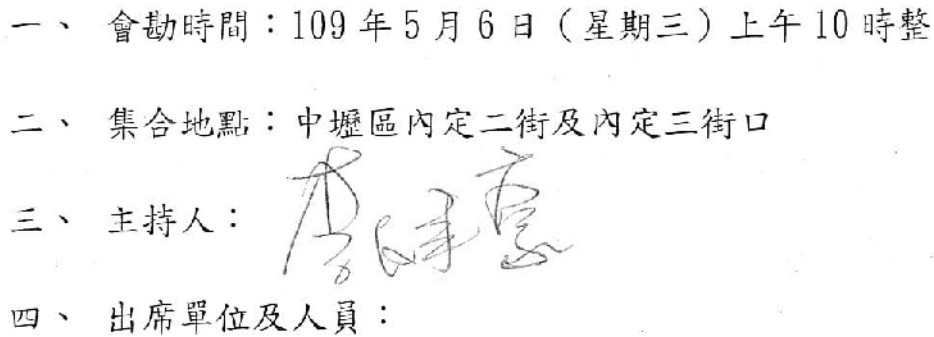 一、 會勘時間：109年5月6日（星期三）上午10時整
二、 集合地點：中壢區內定二街及內定三街口
三、 主持人：
四、 出席單位及人員：